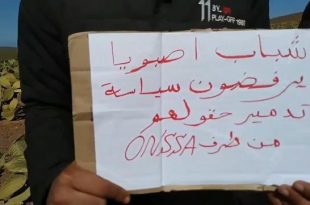 11 BY.
PLAY-OFF 1981
شباب اصبويا
يرفضون سياسة
تدمير حقولهم
من طرف ONSSA